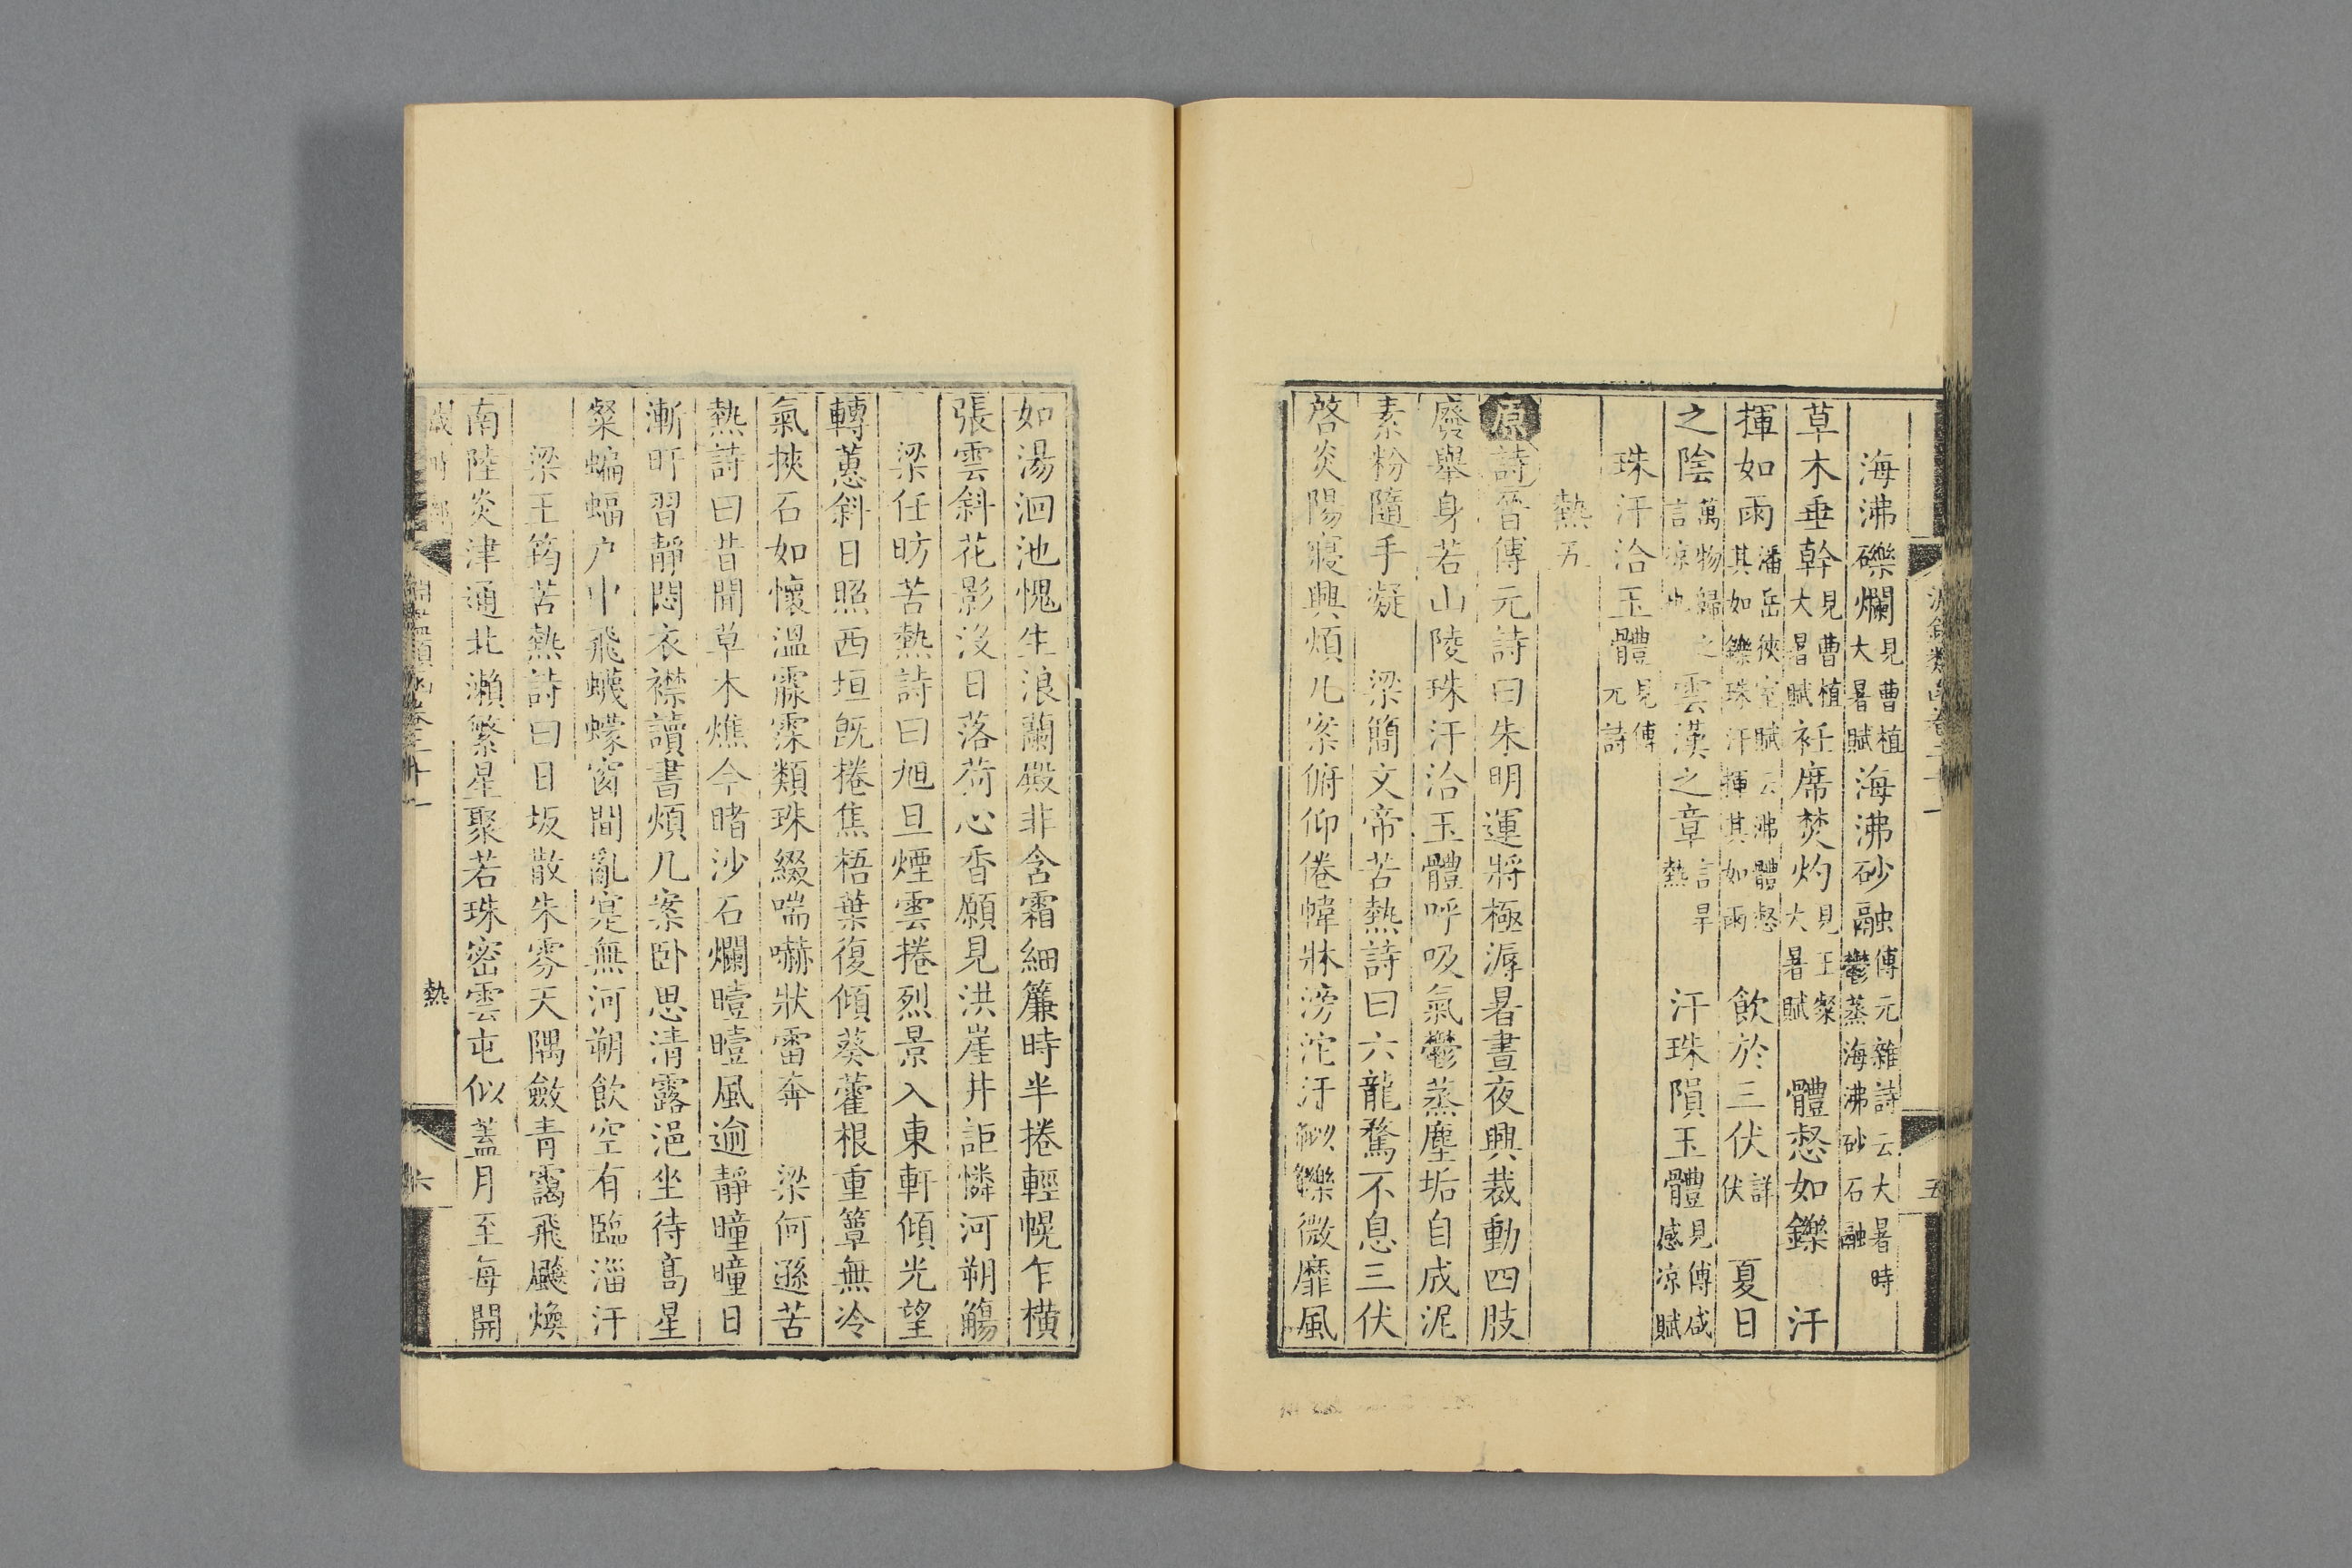 淵鑑類函卷二十一 五
海沸礫爛見曹植大暑賦海沸砂融傅元雜詩云大暑時鬱蒸海沸砂石融
草木垂幹見曹植大暑賦衽席焚灼見王粲大暑賦 體愁如鑠 汗
揮如雨潘岳狹室賦云沸體愁其如鑠珠汗揮其如雨 飲於三伏詳伏 夏日
之陰萬物歸之言凉也 雲漢之章言旱熱 汗珠隕玉體見傅咸感凉賦
珠汗洽玉體見傅元詩
熱五
原詩晉傅元詩曰朱明運將極溽暑晝夜興裁動四肢
廢舉身若山陵珠汗洽玉體呼吸氣鬱蒸塵垢自成泥
素粉隨手凝 梁簡文帝苦熱詩曰六龍騖不息三伏
啓炎陽寢興煩几案俯仰倦幃牀滂沱汗似鑠微靡風
如湯洄池愧生浪蘭殿非含霜細簾時半捲輕幌乍橫
張雲斜花影沒日落荷心香願見洪崖井詎憐河朔觴
梁任昉苦熱詩曰旭旦煙雲捲烈景入東軒傾光望
轉蕙斜日照西垣旣捲焦梧葉復傾葵藿根重簟無冷
氣挾石如懷溫霢霂類珠綴喘嚇狀雷奔 梁何遜苦
熱詩曰昔聞草木燋今睹沙石爛曀曀風逾靜曈曈日
漸旰習靜悶衣襟讀書煩几案卧思清露浥坐待高星
粲蝙蝠户中飛蠛蠓窗間亂寔無河朔飲空有臨淄汗
梁王筠苦熱詩曰日坂散朱雰天隅斂青靄飛飈煥
南陸炎津通北瀨繁星聚若珠密雲屯似蓋月至每開
歲時部 淵鑑類函卷二十一 熱 六